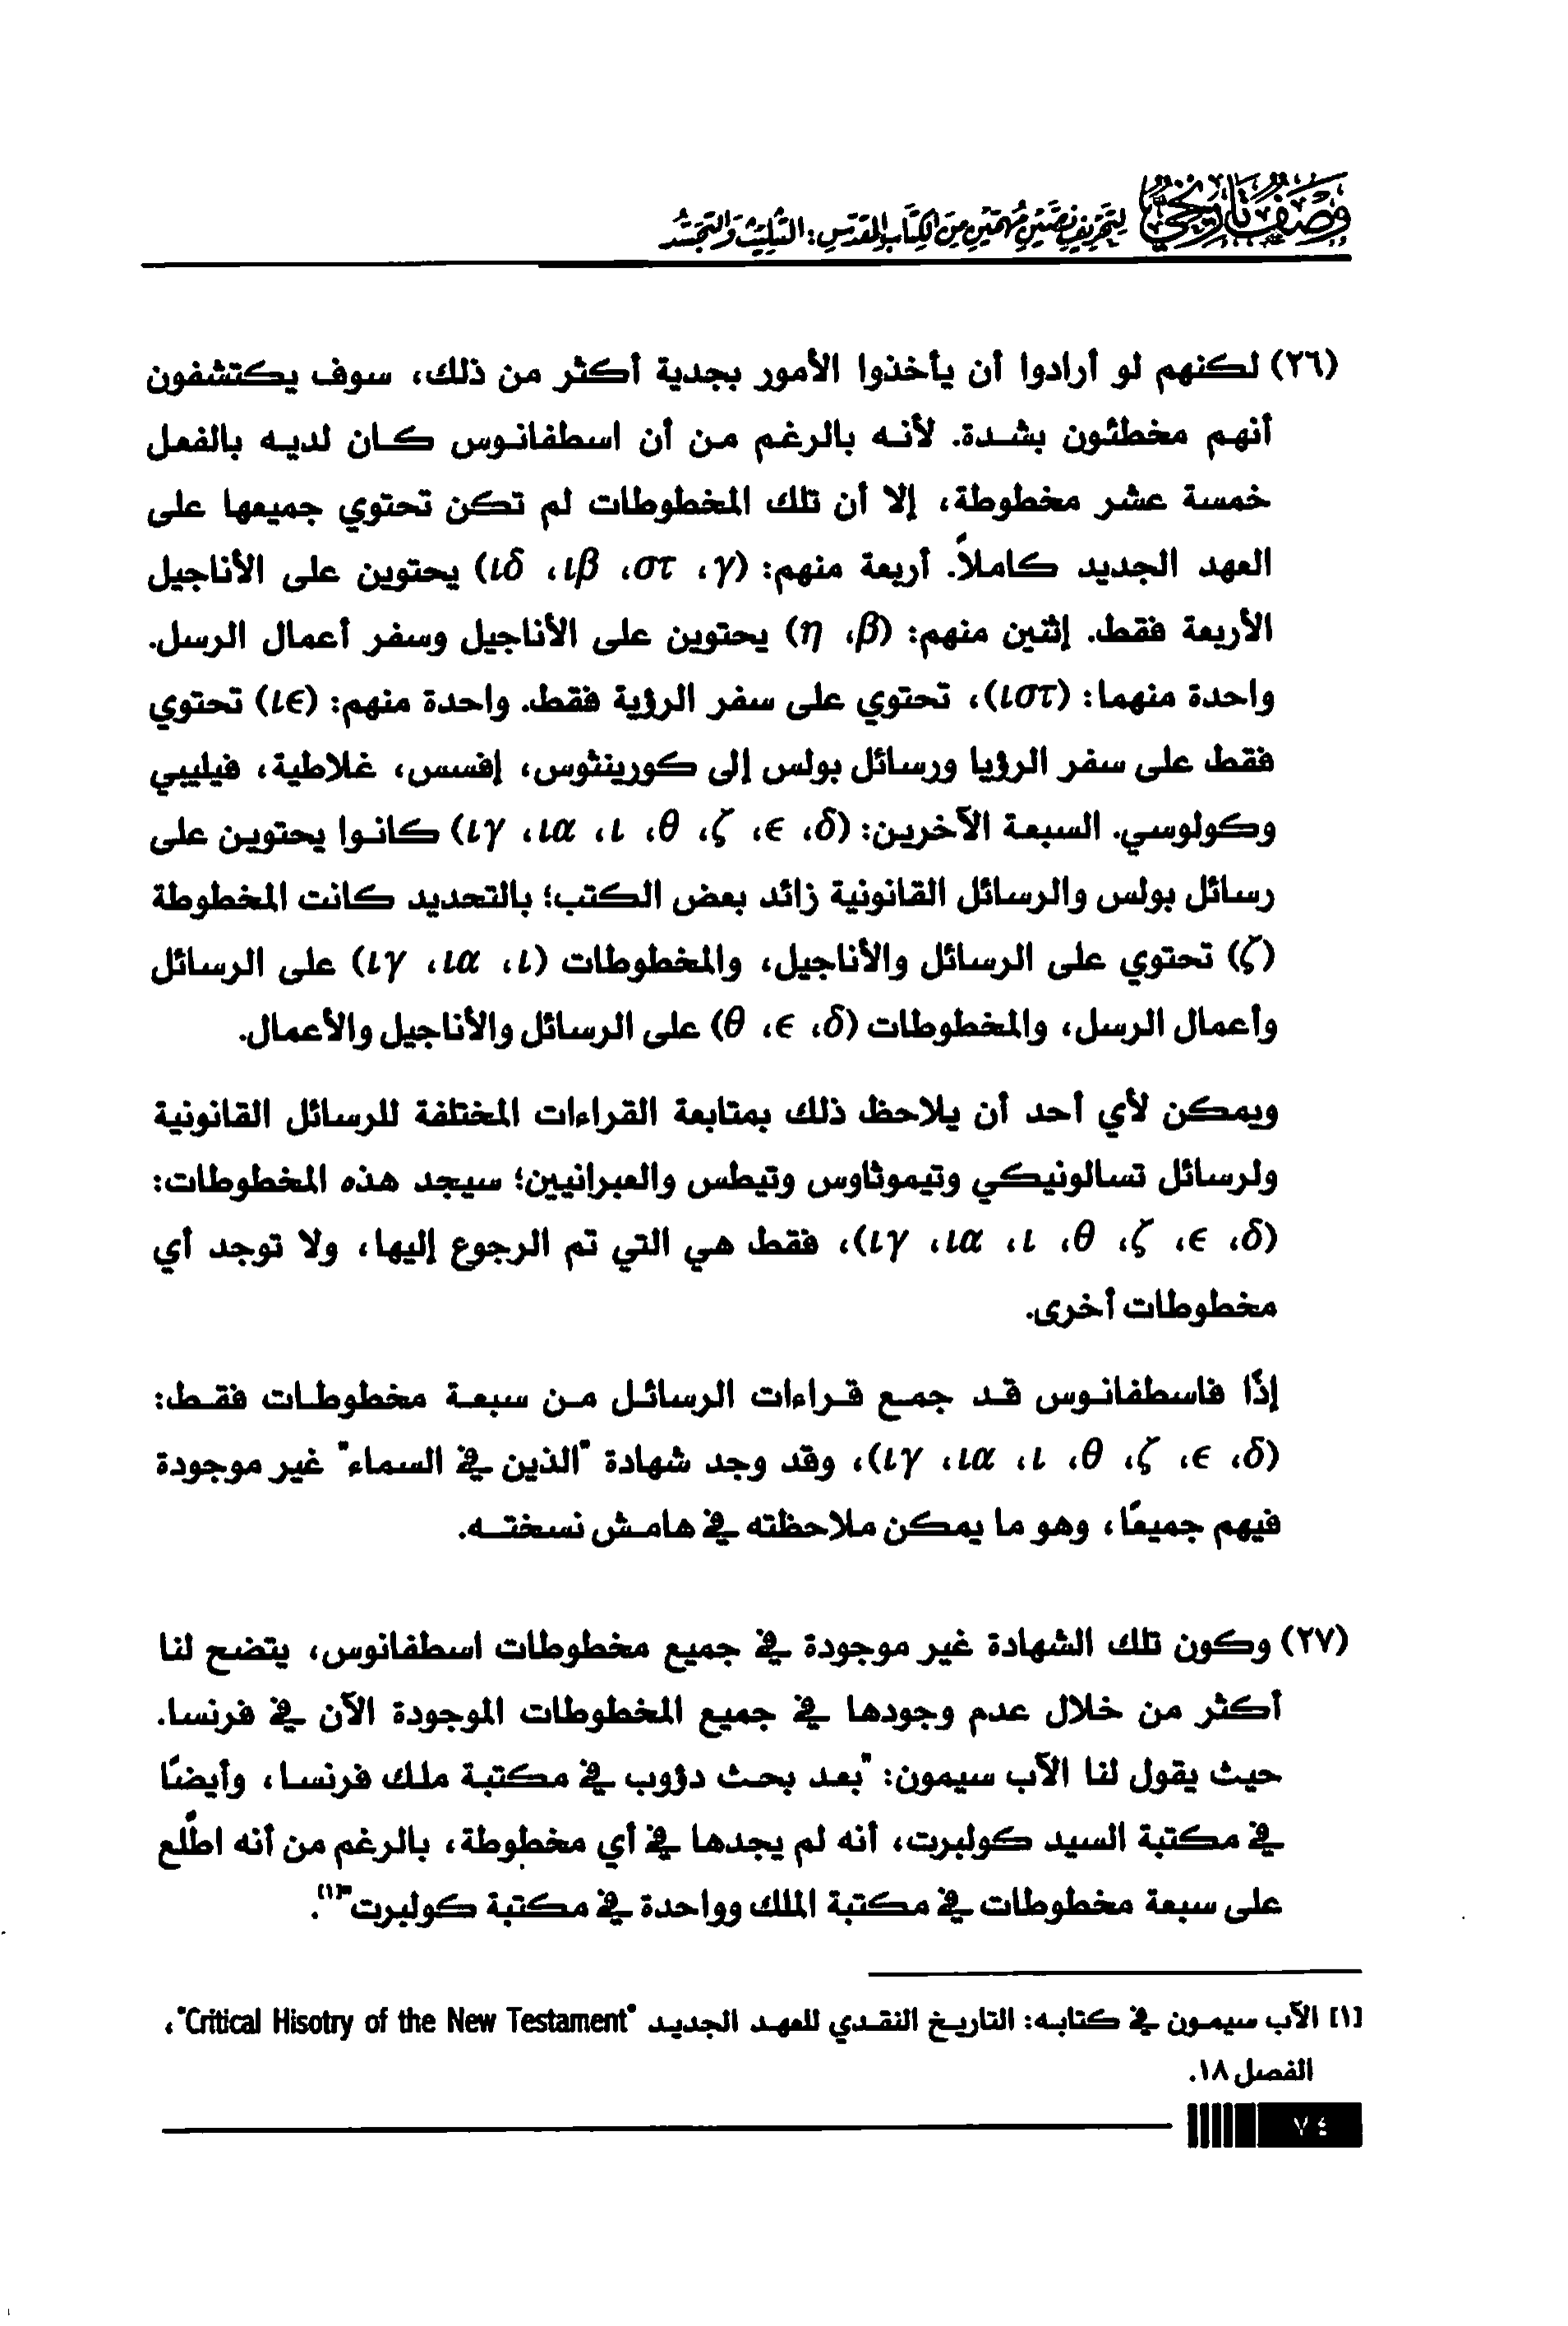 وصف تاريخي لتحريف نصين مهمين من الكتاب المقدس: التثليث والتجسد
(٢٦) لكنهم لو أرادوا أن يأخذوا الأمور بجدية أكثر من ذلك، سوف يكتشفون
أنهم مخطئون بشدة. لأنه بالرغم من أن اسطفانوس كان لديه بالفعل
خمسة عشر مخطوطة، إلا أن تلك المخطوطات لم تكن تحتوي جميعها على
العهد الجديد كاملاً. أربعة منهم: (γ، στ، ιβ، ιδ) يحتوين على الأناجيل
الأربعة فقط. إثنين منهم: (β، η) يحتوين على الأناجيل وسفر أعمال الرسل.
واحدة منهما: (ιστ)، تحتوي على سفر الرؤية فقط. واحدة منهم: (ιϵ) تحتوي
فقط على سفر الرؤيا ورسائل بولس إلى كورينثوس، إفسس، غلاطية، فيليبي
وكولوسي. السبعة الآخرين: (δ، ϵ، ζ، θ، ι، ια، ιγ) كانوا يحتوين على
رسائل بولس والرسائل القانونية زائد بعض الكتب؛ بالتحديد كانت المخطوطة
(ζ) تحتوي على الرسائل والأناجيل، والمخطوطات (ι، ια، ιγ) على الرسائل
وأعمال الرسل، والمخطوطات (δ، ϵ، θ) على الرسائل والأناجيل والأعمال.
ويمكن لأي أحد أن يلاحظ ذلك بمتابعة القراءات المختلفة للرسائل القانونية
ولرسائل تسالونيكي وتيموثاوس وتيطس والعبرانيين؛ سيجد هذه المخطوطات:
(δ، ϵ، ζ، θ، ι، ια، ιγ)، فقط هي التي تم الرجوع إليها، ولا توجد أي
مخطوطات أخرى.
إذًا فاسطفانوس قد جمع قراءات الرسائل من سبعة مخطوطات فقط:
(δ، ϵ، ζ، θ، ι، ια، ιγ)، وقد وجد شهادة "الذين في السماء" غير موجودة
فيهم جميعًا، وهو ما يمكن ملاحظته في هامش نسخته.
(٢٧) وكون تلك الشهادة غير موجودة في جميع مخطوطات اسطفانوس، يتضح لنا
أكثر من خلال عدم وجودها في جميع المخطوطات الموجودة الآن في فرنسا.
حيث يقول لنا الآب سيمون: "بعد بحث دؤوب في مكتبة ملك فرنسا، وأيضًا
في مكتبة السيد كولبرت، أنه لم يجدها في أي مخطوطة، بالرغم من أنه اطّلع
على سبعة مخطوطات في مكتبة الملك وواحدة في مكتبة كولبرت"[١].
[١] الآب سيمون في كتابه: التاريخ النقدي للعهد الجديد "Critical Hisotry of the New Testament"،
الفصل ١٨.
٧٤